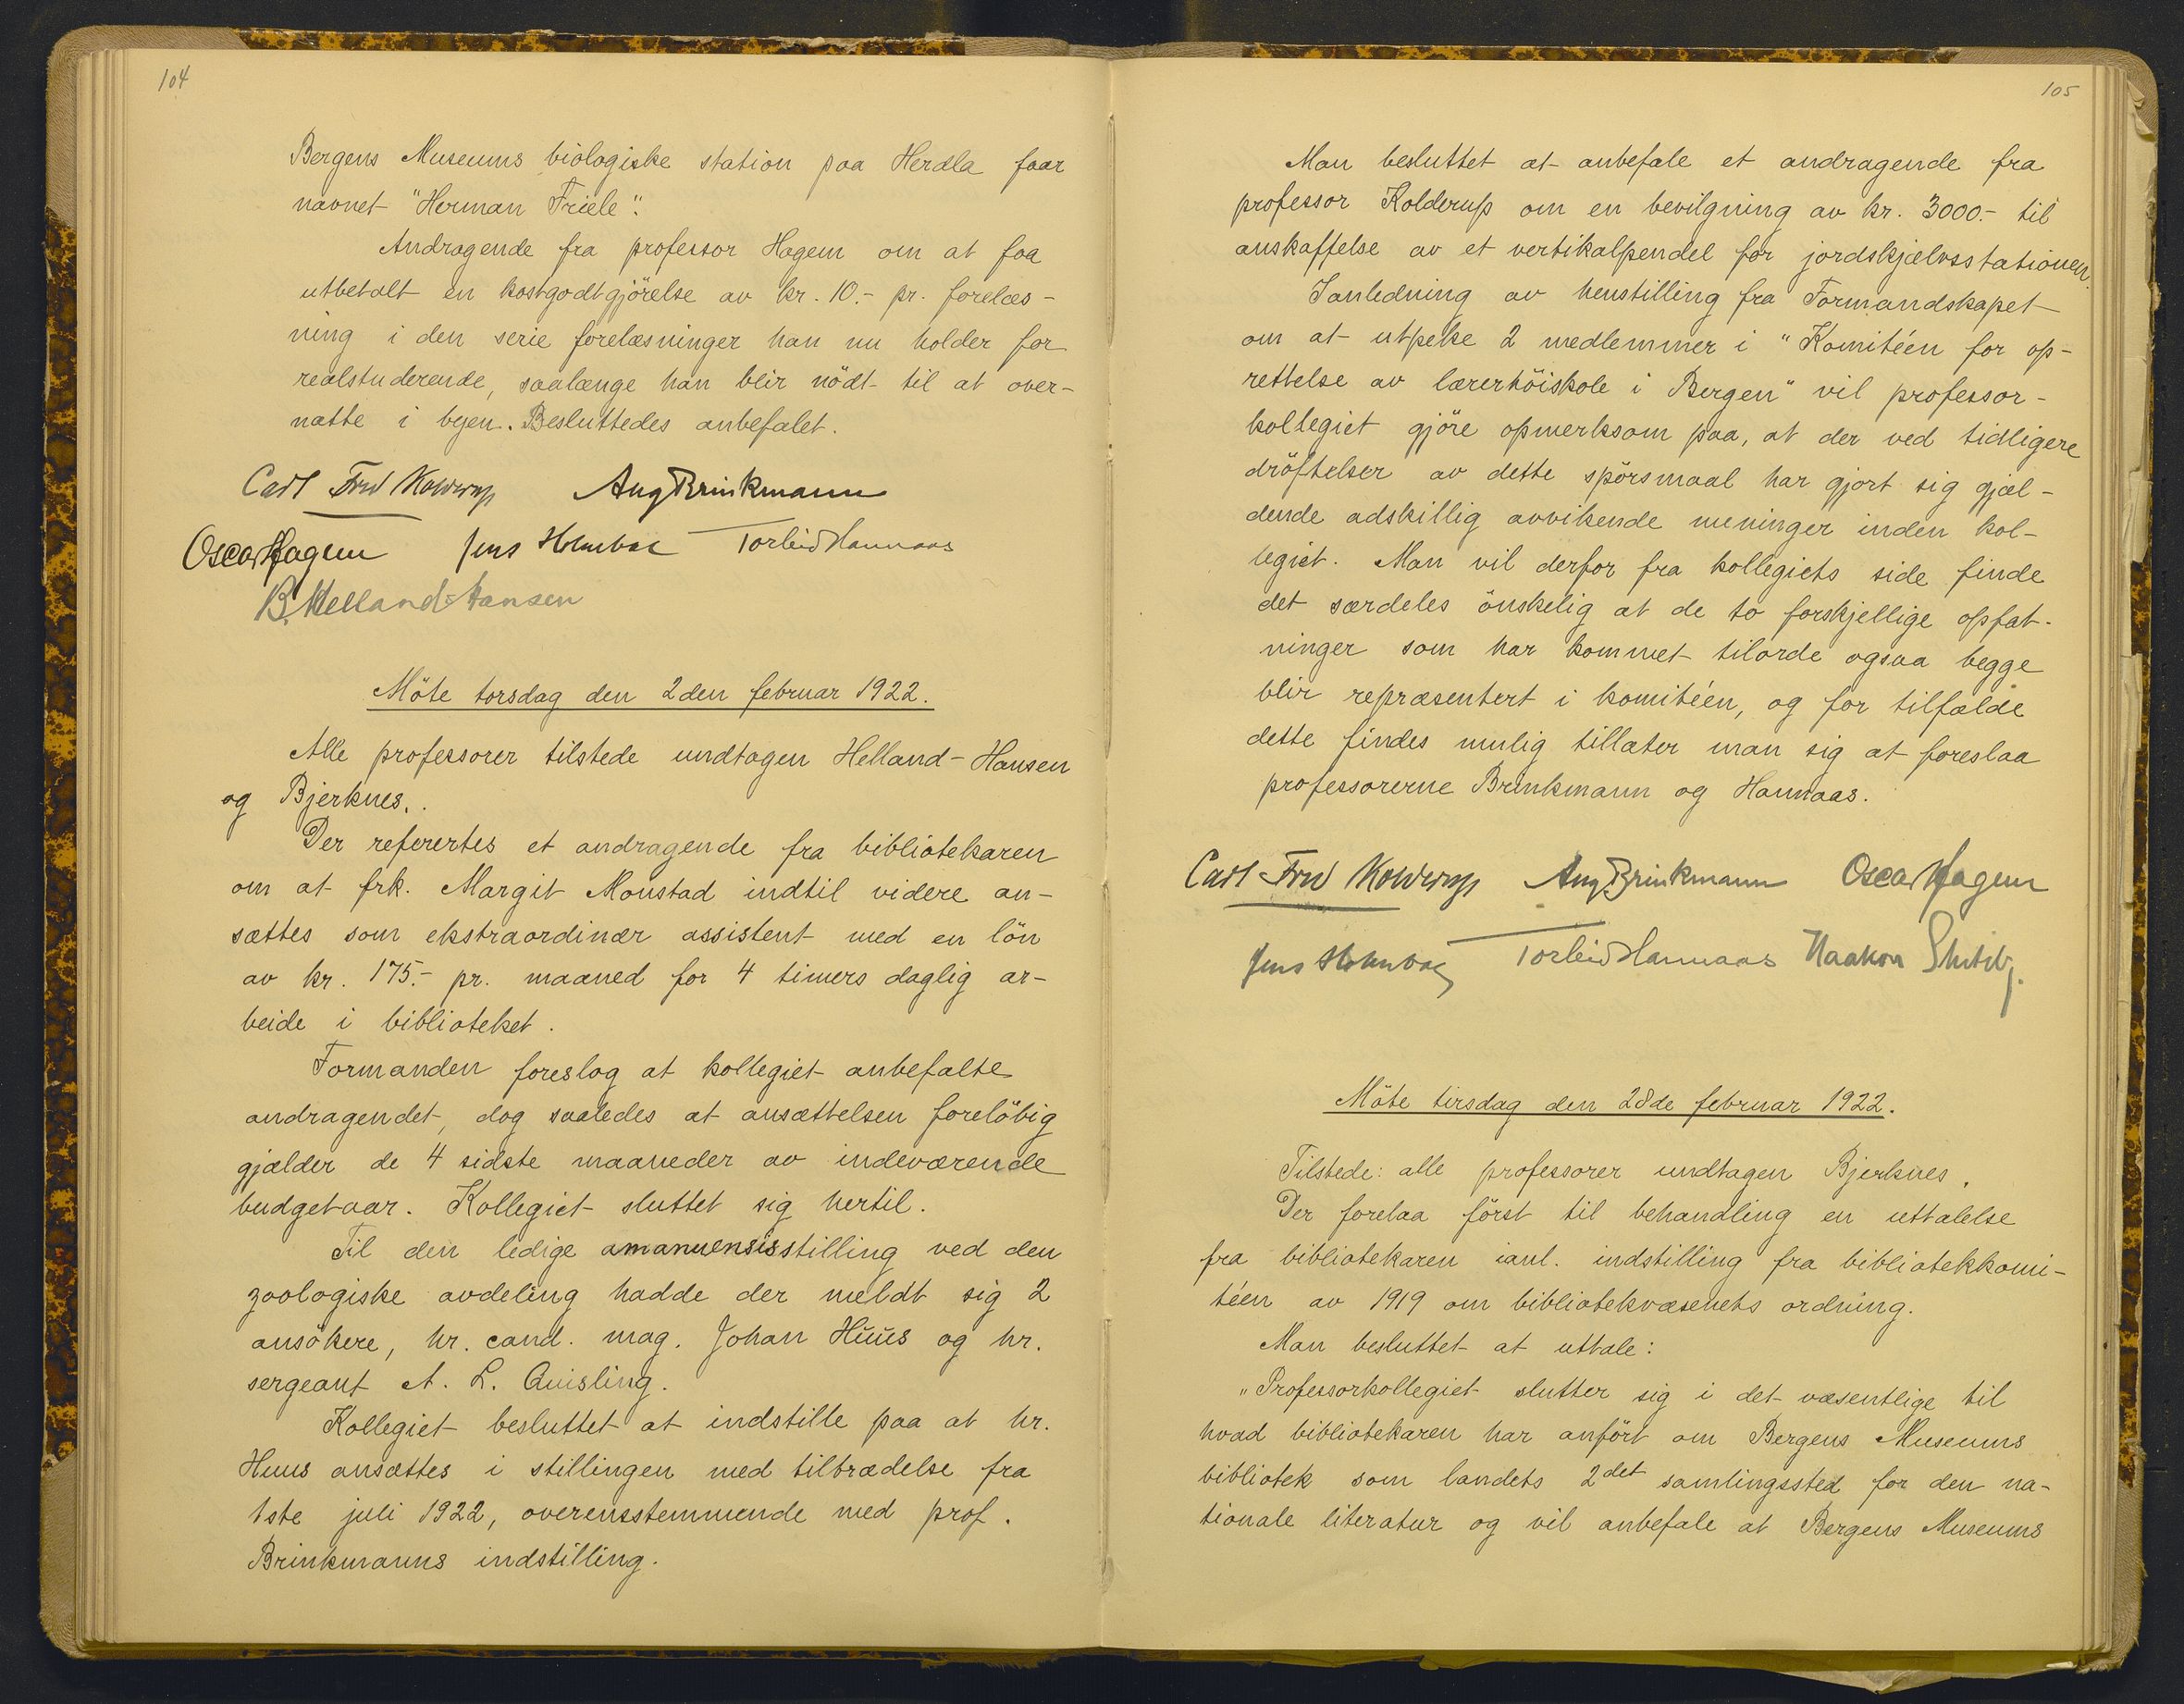 104
Bergens Museums biologiske station paa Herdla faar
navnet "Herman Friele".
Andragende fra professor Hagem om at faa
utbetalt en kostgodtgjörelse av kr. 10.- pr. forelæs-
ning i den serie forelæsninger han nu holder for
realstuderende, saalænge han blir nödt til at over-
natte i byen. Besluttedes anbefalet.
Carl Fred Kolderup Aug Brinkmann
Oscar Hagem Jens Holmboe Torleiv Hannaas
B. Helland-Hansen
Möte torsdag den 2den februar 1922.
Alle professorer tilstede undtagen Helland-Hansen
og Bjerknes.
Der refertes et andragende fra bibliotekaren
om at frk. Margit Monstad indtil videre an-
sættes som ekstraordinær assistent med en lön
av kr. 175.- pr. maaned for 4 timers daglig ar-
beide i biblioteket.
Formanden foreslog at kollegiet anbefalte
andragendet, dog saaledes at ansættelsen forelöbig
gjælder de 4 sidste maaneder av indeværende
budgetaar. Kollegiet sluttet sig hertil.
Til den ledige amanuensisstilling ved den
zoologiske avdeling hadde der meldt sig 2
ansökere, hr. cand. mag. Johan Huus og hr.
sergeant A. L. Quisling.
Kollegiet besluttet at indstille paa at hr.
Huus ansættes i stillingen med tiltrædelse fra
1ste juli 1922, overensstemmende med prof.
Brinkmanns indstilling.
105
Man besluttet at anbefale et andragende fra
professor Kolderup om en bevilgning av kr. 3000.- til
anskaffelse av et vertikalpendel for jordskjælvsstationen.
Ianledning av henstilling fra Formandskapet
om at utpeke 2 medlemmer i "Komitéen for op-
rettelse av lærerhöiskole i Bergen" vil professor-
kollegiet gjöre opmerksom paa, at der ved tidligere
dröftelser av dette spörsmaal har gjort sig gjæl-
dende adskillig avvikende meninger inden kol-
legiet. Man vil derfor fra kollegiets side finde
det særdeles önskelig at de to forskjellige opfat-
ninger som har kommet tilorde ogsaa begge
blir repræsentert i komitéen, og for tilfælde
dette findes mulig tillater man sig at foreslaa
professorerne Brinkmann og Hannaas.
Carl Fred Kolderup Aug Brinkmann Oscar Hagem
Jens Holmboe Torleiv Hannaas Haakon Shetelig.
Möte tirsdag den 28de februar 1922.
Tilstede: alle professorer undtagen Bjerknes.
Der forelaa först til behandling en uttalelse
fra bibliotekaren ianl. indstilling fra bibliotekkomi-
téen av 1919 om bibliotekvæsenets ordning.
Man besluttet at uttale:
"Professorkollegiet slutter sig i det væsentlige til
hvad bibliotekaren har anfört om Bergens Museums
bibliotek som landets 2det samlingssted for den na-
tionale literatur og vil anbefale at Bergens Museums